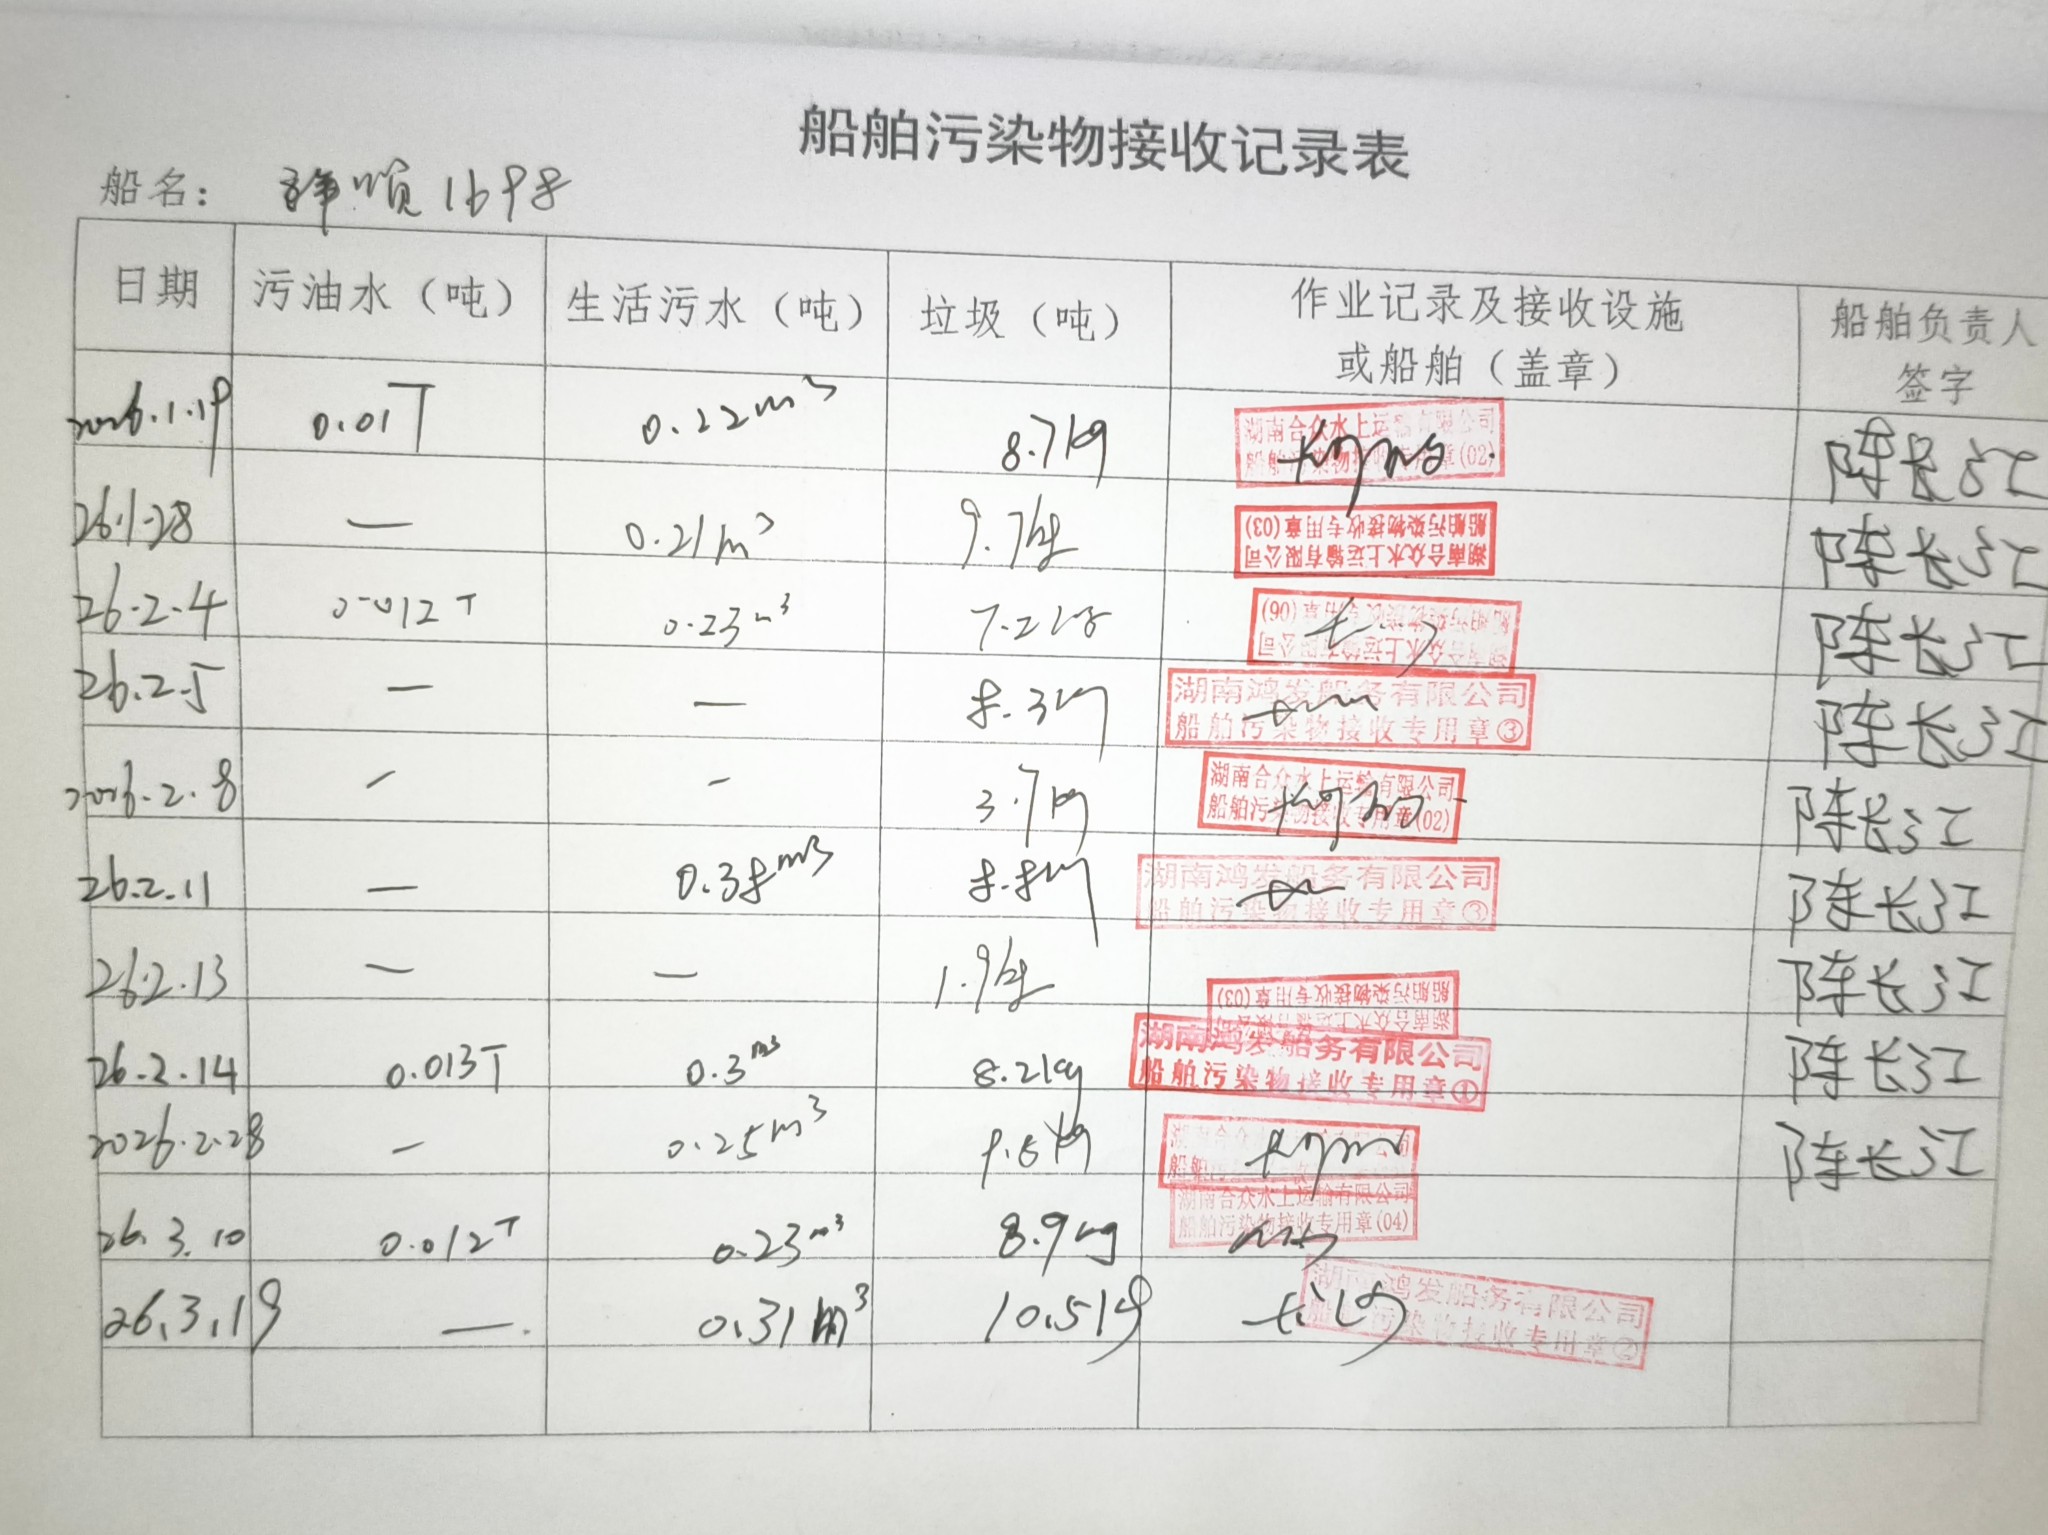 船舶污染物接收记录表
船名： 顺1698
日期 污油水（吨） 生活污水（吨） 垃圾（吨） 作业记录及接收设施或船舶（盖章） 船舶负责人签字
2026.1.19 0.01T 0.22m³ 8.7kg 湖南合众水上运输有限公司 船舶污染物接收专用章(02) 陈长江
26.1.28 — 0.21m³ 9.7kg 湖南合众水上运输有限公司 船舶污染物接收专用章(03) 陈长江
26.2.4 0.012T 0.23m³ 7.2kg 湖南合众水上运输有限公司 船舶污染物接收专用章(06) 陈长江
26.2.5 — — 8.3kg 湖南鸿发船务有限公司 船舶污染物接收专用章③ 陈长江
2026.2.8 — — 3.7kg 湖南合众水上运输有限公司 船舶污染物接收专用章(02) 陈长江
26.2.11 — 0.38m³ 8.8kg 湖南鸿发船务有限公司 船舶污染物接收专用章③ 陈长江
26.2.13 — — 1.9kg 湖南合众水上运输有限公司 船舶污染物接收专用章(03) 陈长江
26.2.14 0.013T 0.3m³ 8.2kg 湖南鸿发船务有限公司 船舶污染物接收专用章① 陈长江
2026.2.28 — 0.25m³ 陈长江
26.3.10 0.012T 0.23m³ 8.9kg 湖南合众水上运输有限公司 船舶污染物接收专用章(04)
26.3.19 — 0.31m³ 10.5kg 湖南鸿发船务有限公司 船舶污染物接收专用章②